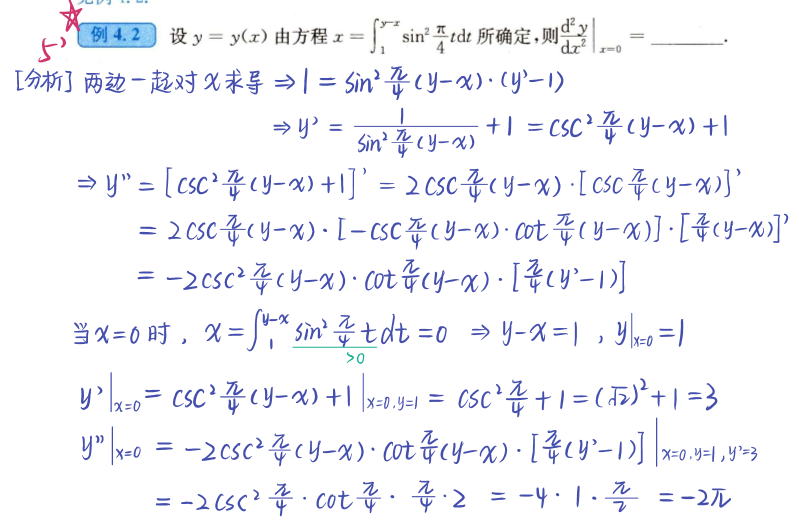 5'
例 4.2 设 y = y(x) 由方程 x = ∫₁^{y-x} sin² π/4 tdt 所确定,则 d²y/dx² |ₓ₌₀ = ________.
[分析] 两边一起对 x 求导 ⇒ 1 = sin² π/4 (y-x)·(y'-1)
⇒ y' = 1/(sin² π/4 (y-x)) + 1 = csc² π/4 (y-x) + 1
⇒ y'' = [csc² π/4 (y-x) + 1]' = 2csc π/4 (y-x)·[csc π/4 (y-x)]'
= 2csc π/4 (y-x)·[-csc π/4 (y-x)·cot π/4 (y-x)]·[π/4 (y-x)]'
= -2csc² π/4 (y-x)·cot π/4 (y-x)·[π/4 (y'-1)]
当 x=0 时, x = ∫₁^{y-x} sin² π/4 t dt = 0 ⇒ y-x=1 , y|ₓ₌₀ = 1
>0
y'|ₓ₌₀ = csc² π/4 (y-x) + 1 |ₓ₌₀,y=1 = csc² π/4 + 1 = (√2)² + 1 = 3
y''|ₓ₌₀ = -2csc² π/4 (y-x)·cot π/4 (y-x)·[π/4 (y'-1)] |ₓ₌₀,y=1,y'=3
= -2csc² π/4 · cot π/4 · π/4 · 2 = -4·1·π/2 = -2π